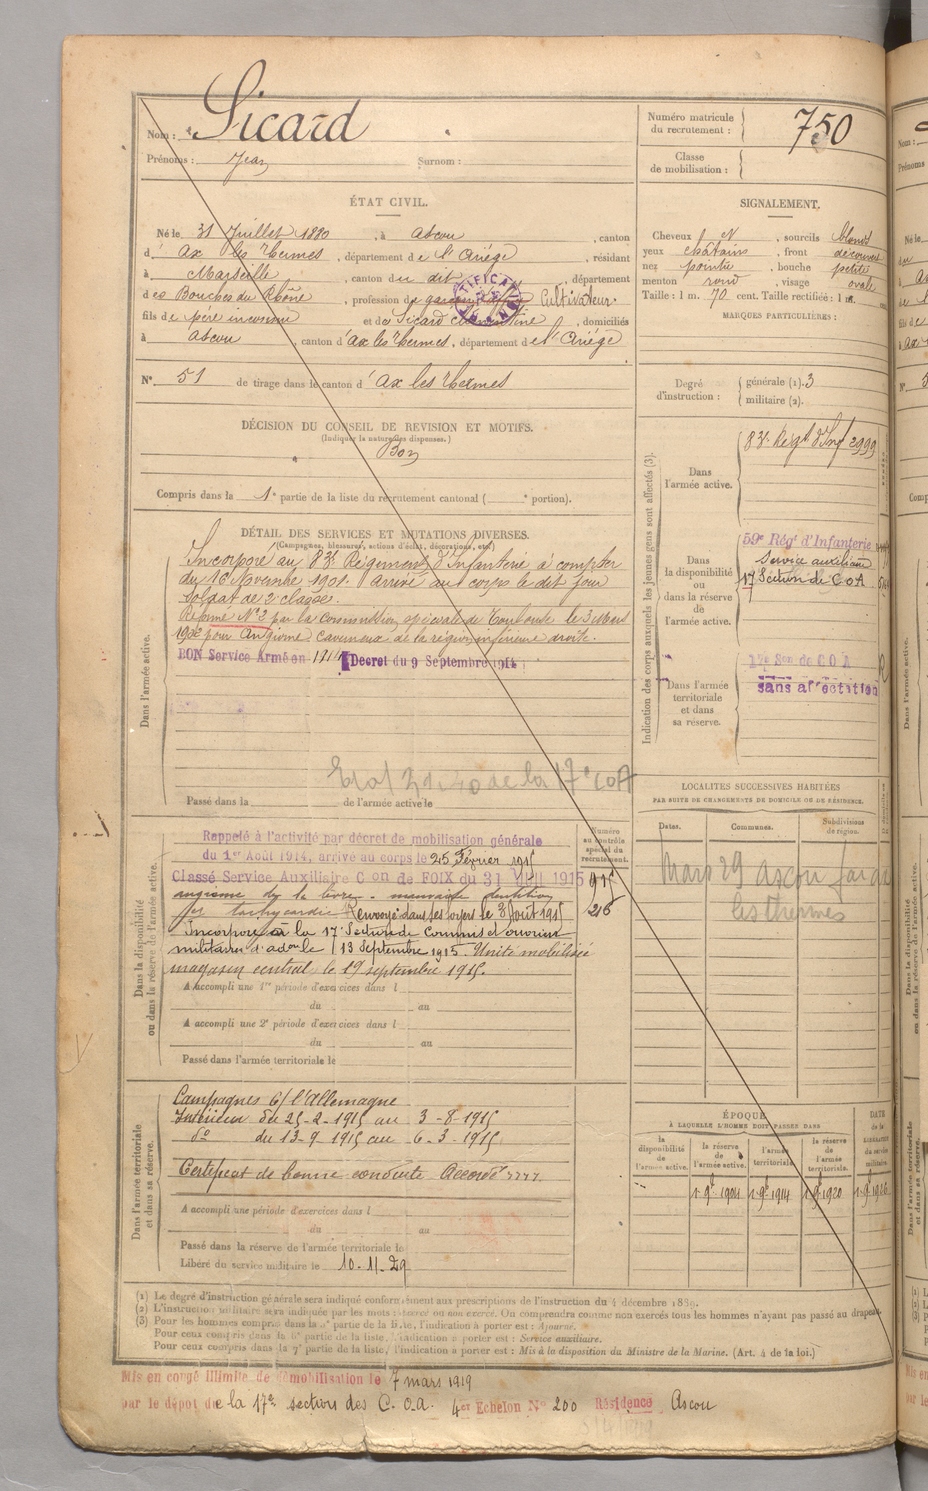 Nom : Sicard
Prénoms : Jean Surnom :
Numéro matricule du recrutement : 750
Classe de mobilisation :
ÉTAT CIVIL.
Né le 31 Juillet 1880, à Ascou, canton
d'Ax les Thermes, département de l'Ariège, résidant
à Marseille, canton du dit, département
des Bouches du Rhône, profession de garçon Cultivateur.
fils de père inconnu et de Sicard Clementine, domiciliés
à Ascou, canton d'Ax les Thermes, département de l'Ariège
N° 51 de tirage dans le canton d'Ax les Thermes
SIGNALEMENT.
Cheveux N, sourcils blonds
yeux chatains, front découvert
nez pointu, bouche petite
menton rond, visage ovale
Taille : 1 m. 70 cent. Taille rectifiée : 1 m.
MARQUES PARTICULIÈRES :
Degré d'instruction : générale (1). 3
militaire (2).
DÉCISION DU CONSEIL DE REVISION ET MOTIFS.
(Indiquer la nature des dispenses.)
Bon
Compris dans la 1e partie de la liste du recrutement cantonal ( e portion).
DÉTAIL DES SERVICES ET MUTATIONS DIVERSES.
(Campagnes, blessures, actions d'éclat, décorations, etc.)
Dans l'armée active.
Incorporé au 83e Régiment d'Infanterie à compter
du 16 Novembre 1901. Arrivé au corps le dit jour
soldat de 2e classe.
Réformé N°2 par la Commission spéciale de Toulouse le 3 Mars
1902 pour Angiome caverneux de la région inférieure droite.
BON Service Armé en 1914 Décret du 9 Septembre 1914
de la 17e COA
Passé dans la de l'armée active le
Indication des corps auxquels les jeunes gens sont affectés (3).
Dans l'armée active.
83e Régt d'Inf 2999
Dans la disponibilité ou dans la réserve de l'armée active.
59e Régt d'Infanterie
Service auxiliaire
17 Section de C O A
Dans l'armée territoriale et dans sa réserve.
17e Son de C O A
sans affectation
Dans la disponibilité ou dans la réserve de l'armée active.
Numéro au contrôle spécial du recrutement.
Rappelé à l'activité par décret de mobilisation générale
du 1er Août 1914, arrivé au corps le 25 Février 1915
Classé Service Auxiliaire Con de FOIX du 31 1915
angiome de la lèvre - mauvaise dentition
tachycardie Renvoyé dans ses foyers le 3 Août 1915
Incorporé à la 17e Section de Commis et ouvriers
militaires d'ad le 13 Septembre 1915. Unité mobilisée
magasin central le 19 septembre 1915.
A accompli une 1re période d'exercices dans l
du au
A accompli une 2e période d'exercices dans l
du au
Passé dans l'armée territoriale le
LOCALITÉS SUCCESSIVES HABITÉES
PAR SUITE DE CHANGEMENTS DE DOMICILE OU DE RÉSIDENCE.
Dates. Communes. Subdivisions de région.
Mars 29 Ascou
les Thermes
Dans l'armée territoriale et dans sa réserve.
Campagnes c/ l'Allemagne
Intérieur du 25-2-1915 au 3-8-1915
do du 13-9-1915 au 6-3-1915
Certificat de bonne conduite Accordé
A accompli une période d'exercices dans l
du au
Passé dans la réserve de l'armée territoriale le
Libéré du service militaire le 10-11-29
ÉPOQUE
À LAQUELLE L'HOMME DOIT PASSER DANS
la disponibilité de l'armée active. la réserve de l'armée active. l'armée territoriale. la réserve de l'armée territoriale. DATE de la LIBÉRATION du service militaire.
1904 1914 1920 1926
(1) Le degré d'instruction générale sera indiqué conformément aux prescriptions de l'instruction du 4 décembre 1889.
(2) L'instruction militaire sera indiquée par les mots : exercé ou non exercé. On comprendra comme non exercés tous les hommes n'ayant pas passé au drapeau.
(3) Pour les hommes compris dans la 5e partie de la liste, l'indication à porter est : Ajourné.
Pour ceux compris dans la 6e partie de la liste, l'indication à porter est : Service auxiliaire.
Pour ceux compris dans la 7e partie de la liste, l'indication à porter est : Mis à la disposition du Ministre de la Marine. (Art. 4 de la loi.)
Mis en congé illimité de démobilisation le 7 mars 1919
par le dépôt de la 17e section des C.O.A. 4er Echelon N° 200 Résidence Ascou